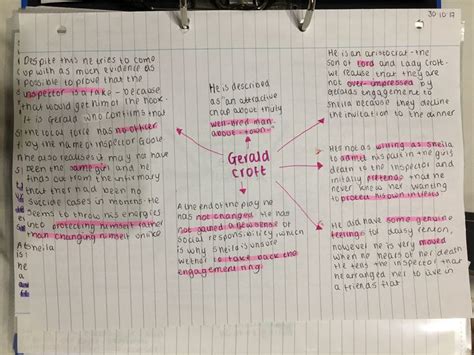 30·10·17
Despite this he tries to come
up with as much evidence as
possible to prove that the
inspector is a fake - because
that would get him of the hook
It is Gerald who confirms that
the local force has no officer
by the name of inspector Goole
he also realises it may no have
been the same girl and he
finds out from the infirmary
that they had been no
suicide cases in months. He
seems to throw his energies
into protecting himself rather
than changing himself unlike
sheila
He is described
as "an attractive
chap about thirty
well-bred man
about-town"
Gerald
croft
At the end of the play he
has not changed. He has
not gained a new sense of
social responsibility, which
is why Sheila is unsure
wether to take back the
engagement ring.
He is an aristocrat - the
son of Lord and Lady Croft -
we realise that they are
not over-impressed by
Geralds engagement to
Sheila because they decline
the invitation to the dinner
He's not as willing as Sheila
to admit his part in the girls
death to the inspector and
initially pretends that he
never knew her wanting
to protect his own interests
He did have some genuine
feelings for daisy renton,
however he is very moved
when he hears of her death
He tells the inspector that
he arranged her to live in
a friends flat